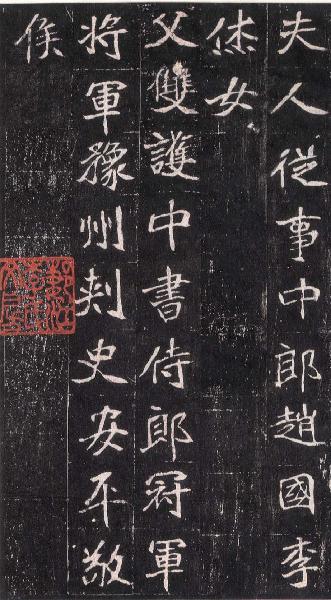 夫人從事中郎趙國李
休女
父雙護中書侍郎冠軍
將軍豫州刾史安平敬
侯